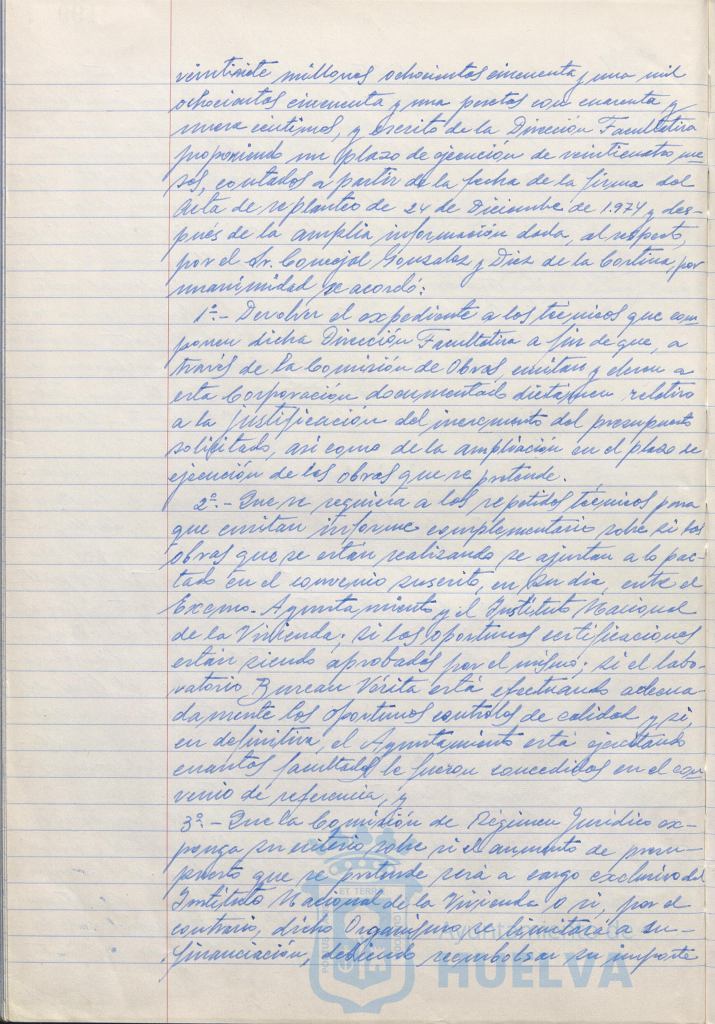 veintisiete millones ochocientas cincuenta y una mil
ochocientas cincuenta y una pesetas con cuarenta y
nueve céntimos, y escrito de la Dirección Facultativa
proponiendo un plazo de ejecución de veinticuatro me-
ses, contados a partir de la fecha de la firma del
Acta de replanteo de 24 de Diciembre de 1.974 y des-
pués de la amplia información dada, al respecto,
por el Sr. Concejal Gonzalez y Diez de la Cortina, por
unanimidad se acordó:
1º.- Devolver el expediente a los técnicos que com-
ponen dicha Dirección Facultativa a fin de que, a
través de la Comisión de Obras, emitan y eleven a
esta Corporación documentado dictámen relativo
a la justificación del incremento del presupuesto
solicitado, así como de la ampliación en el plazo de
ejecución de las obras que se pretende.
2º.- Que se requiera a los repetidos técnicos para
que emitan informe complementario sobre si las
obras que se están realizando se ajustan a lo pac-
tado en el convenio suscrito, en su día, entre el
Excmo. Ayuntamiento y el Instituto Nacional
de la Vivienda; si las oportunas certificaciones
están siendo aprobadas por el mismo; si el labo-
ratorio Bureau Vérita está efectuando adecua-
damente los oportunos controles de calidad y si,
en definitiva, el Ayuntamiento está ejecitando
cuantas facultades le fueron concedidas en el con-
venio de referencia, y
3º.- Que la Comisión de Régimen Jurídico ex-
ponga su criterio sobre si el aumento de presu-
puesto que se pretende será a cargo exclusivo del
Instituto Nacional de la Vivienda o si, por el
contrario, dicho Organismo se limitará a su
financiación, debiendo reembolsar su importe
ET TERRÆ
Ayuntamiento de
HUELVA